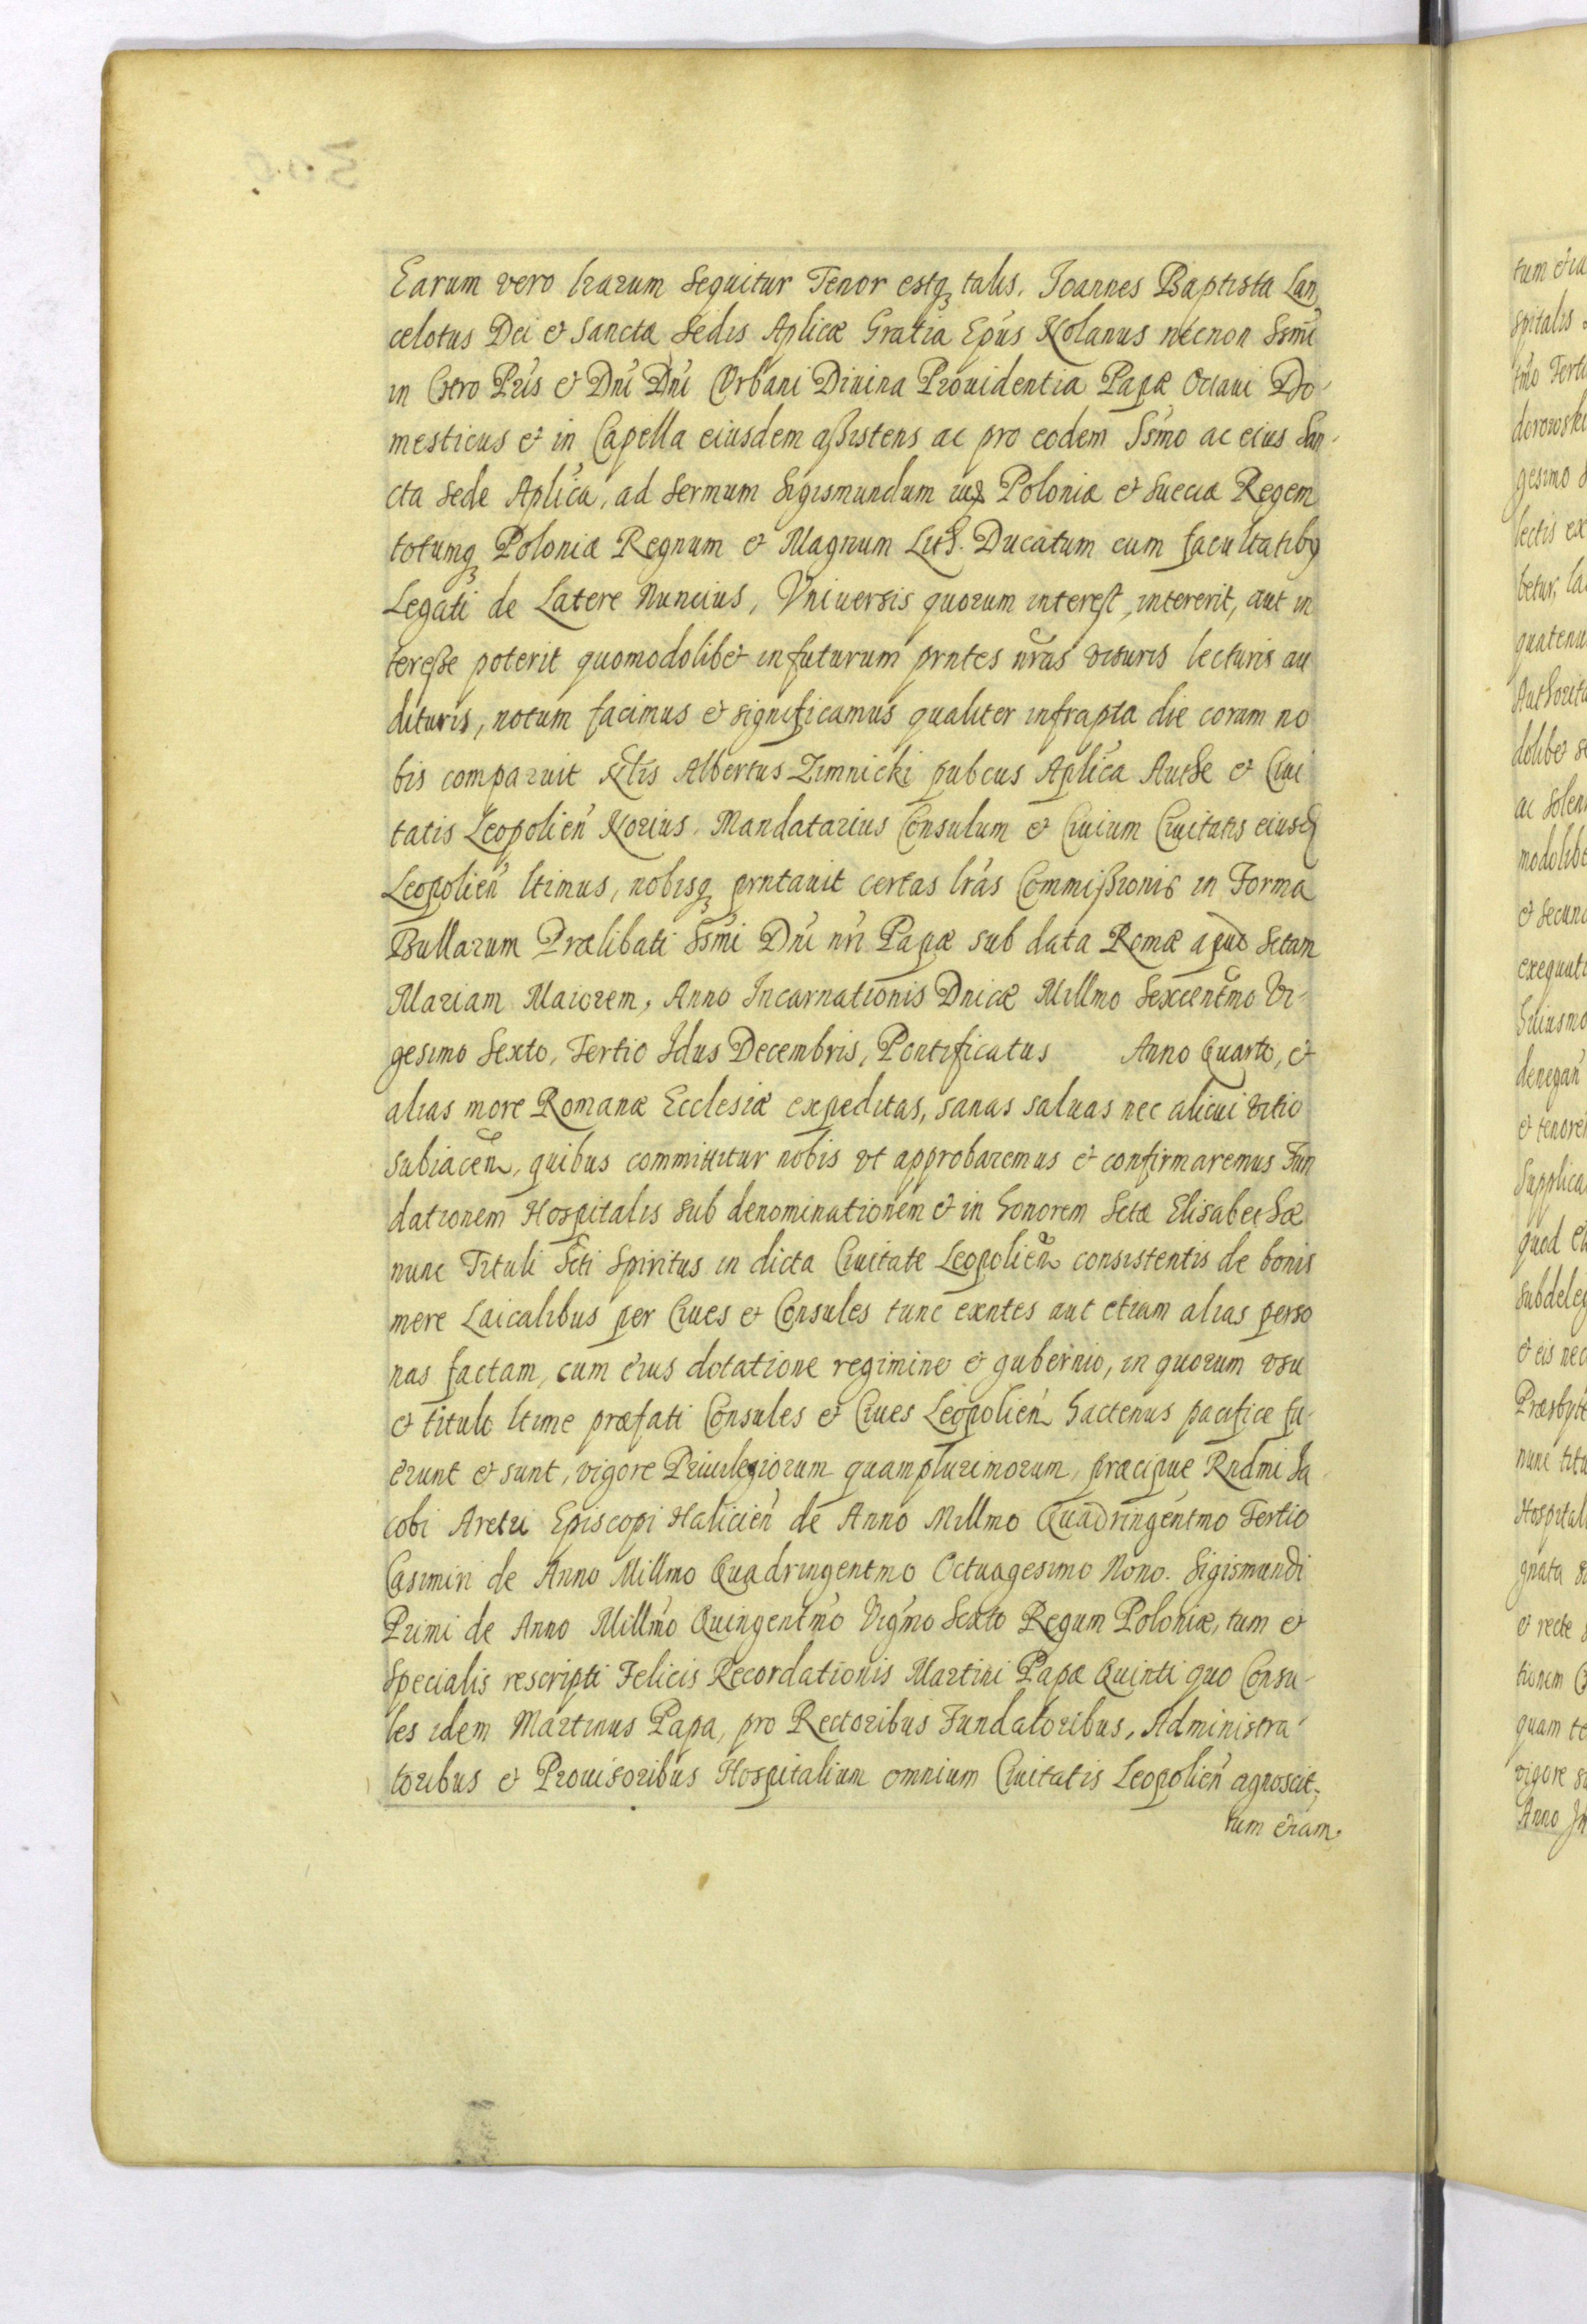 Earum vero lrarum sequitur Tenor estq₃ talis. Joannes Baptista Lan
celotus Dei et Sanctæ Sedis Aplicæ Gratia Epus Nolanus necnon Ssmi
in Chro Pris et Dni Dni Vrbani Diuina Prouidentia Papæ Octaui Do-
mesticus et in Capella eiusdem aßistens ac pro eodem Ssmo ac eius San-
cta Sede Aplica, ad Sermum Sigismundum Poloniæ et Sueciæ Regem
totumq₃ Poloniæ Regnum et Magnum Lith. Ducatum cum facultatibꝰ
Legati de Latere Nuncius, Vniuersis quorum interest, intererit, aut in
tereße poterit quomodolibet in futurum prntes nras visuris lecturis au
dituris, notum facimus et significamus qualiter infrapta die coram no
bis comparuit Nlis Albertus Zimnicki pubcus Aplica Authe et Ciui
tatis Leopolien Norius. Mandatarius Consulum et Ciuium Ciuitatis eiusd
Leopolien ltimus, nobisq₃ prntauit certas lras Commißionis in Forma
Bullarum Prælibati Ssmi Dni nri Papæ sub data Romæ apud Sctam
Mariam Maiorem, Anno Incarnationis Dnicæ Millmo Sexcentmo Vi-
gesimo Sexto, Tertio Idus Decembris, Pontificatus Anno Quarto, et
alias more Romanæ Ecclesiæ expeditas, sanas saluas nec alicui vitio
subiacen, quibus committitur nobis vt approbaremus et confirmaremus Fun
dationem Hospitalis sub denominationem et in honorem Sctæ Elisabethæ
nunc Tituli Scti Spiritus in dicta Ciuitate Leopolien consistentis de bonis
mere Laicalibus per Ciues et Consules tunc exntes aut etiam alias perso
nas factam, cum eius dotatione regimine et gubernio, in quorum vsu
et titulo ltime præfati Consules et Ciues Leopolien hactenus pacifice fu-
erunt et sunt, vigore Priuilegiorum quamplurimorum, præcipue Rndmi Ja
cobi Aretu Episcopi Halicien de Anno Millmo Quadringentmo Tertio
Casimiri de Anno Millmo Quadringentmo Octuagesimo Nono. Sigismundi
Primi de Anno Millmo Quingentmo Vigmo Sexto Regum Poloniæ, tum et
specialis rescripti Felicis Recordationis Martini Papæ Quinti quo Consu-
les idem Martinus Papa, pro Rectoribus Fundatoribus, Administra-
toribus et Prouisoribus Hospitalium omnium Ciuitatis Leopolien agnoscit,
tum etiam